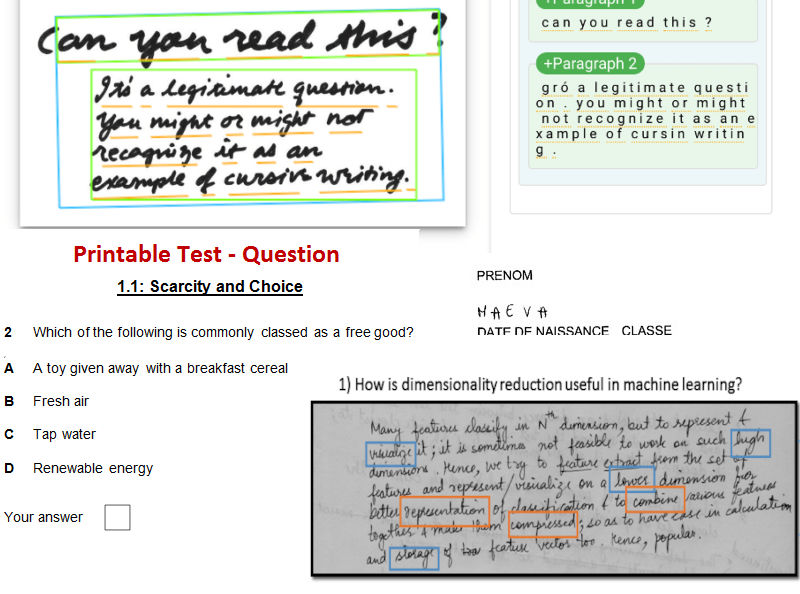 Can you read this?
It's a legitimate question.
You might or might not
recognize it as an
example of cursive writing.
+Paragraph 1
can you read this ?
+Paragraph 2
gró a legitimate questi
on . you might or might
not recognize it as an e
xample of cursin writin
g .
Printable Test - Question
1.1: Scarcity and Choice
2 Which of the following is commonly classed as a free good?
A A toy given away with a breakfast cereal
B Fresh air
C Tap water
D Renewable energy
Your answer
PRENOM
MAEVA
DATE DE NAISSANCE CLASSE
1) How is dimensionality reduction useful in machine learning?
Many features classify in Nth dimension, but to represent &
visualize it; it is sometimes not feasible to work on such high
dimensions. Hence, we try to feature extract from the set of
features and represent/visualize on a lower dimension for
better representation of classification & to combine various features
together & make them compressed; so as to have ease in calculation
and storage of feature vector too. Hence, popular.